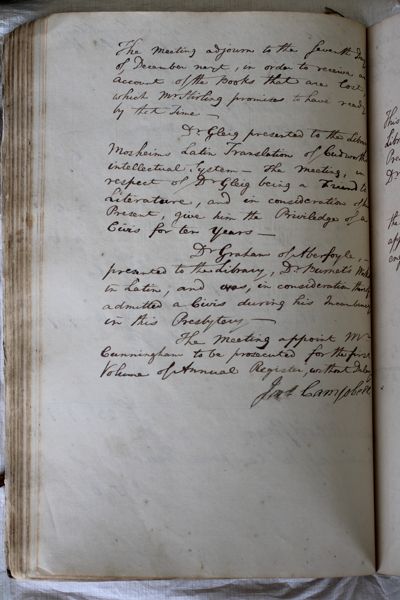 The meeting adjourn to the Seventh Day
of December next, in order to receive an
account of the Books that are lost
which Mr Stirling promises to have ready
by that Time —
Dr Gleig presented to the Library
Mosheims Latin Translation of Cudworths
intellectual System — The meeting, in
respect of Dr Gleig being a Friend to
Literature, and in consideration of his
Present, give him the Priviledge of a
Civis for ten Years —
Dr Graham of Aberfoyle, —
presented to the Library, Dr Burnets Works
in Latin, and was, in consideration thereof
admitted a Civis during his Incumbency
in this Presbytery —
The Meeting appoint Mr
Cunningham to be prosecuted for the first
Volume of Annual Register, without Delay
Jas Campbell
This
Dr
the